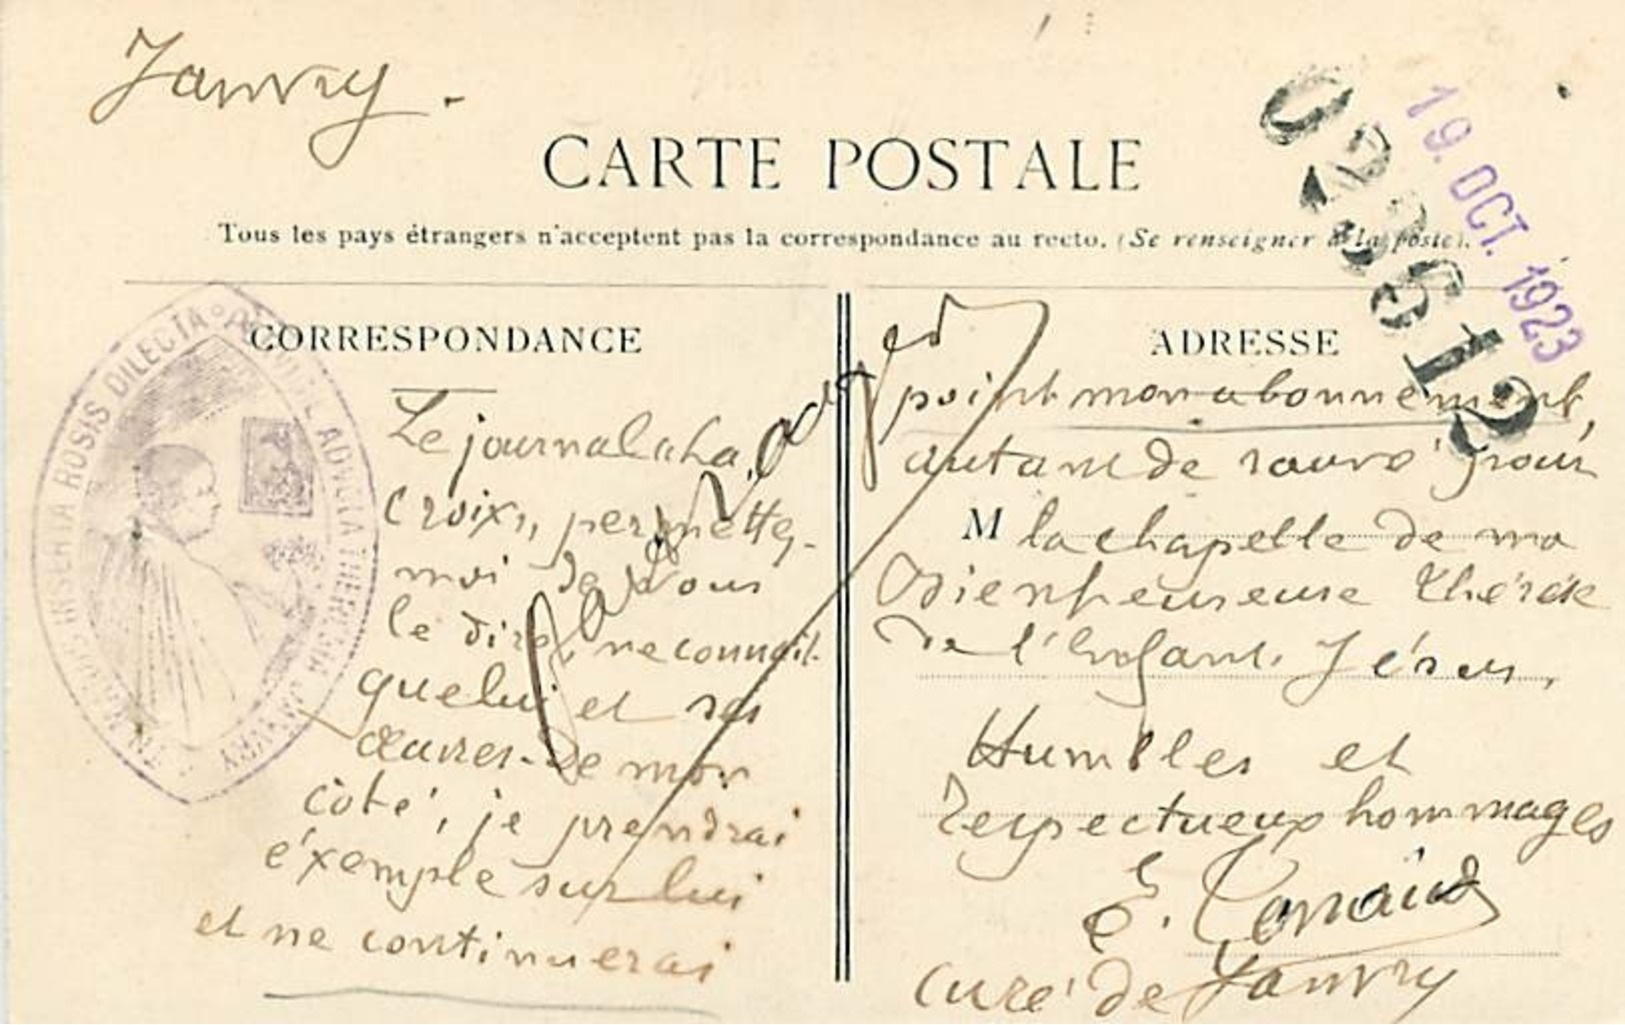 Janvry.
CARTE POSTALE
Tous les pays étrangers n'acceptent pas la correspondance au recto. (Se renseigner à la poste).
023612
19. OCT. 1923
CORRESPONDANCE
ROSIS DILECTA
Le journal la
Croix, permettez-
moi de vous
le dire, ne connaît
que lui et ses
œuvres. De mon
côté, je prendrai
exemple sur lui
et ne continuerai
ADRESSE
point mon abonnement,
autant de sauvé pour
M la chapelle de ma
Bienheureuse Thérèse
de l'Enfant Jésus.
Humbles et
respectueux hommages
E.
curé de Janvry